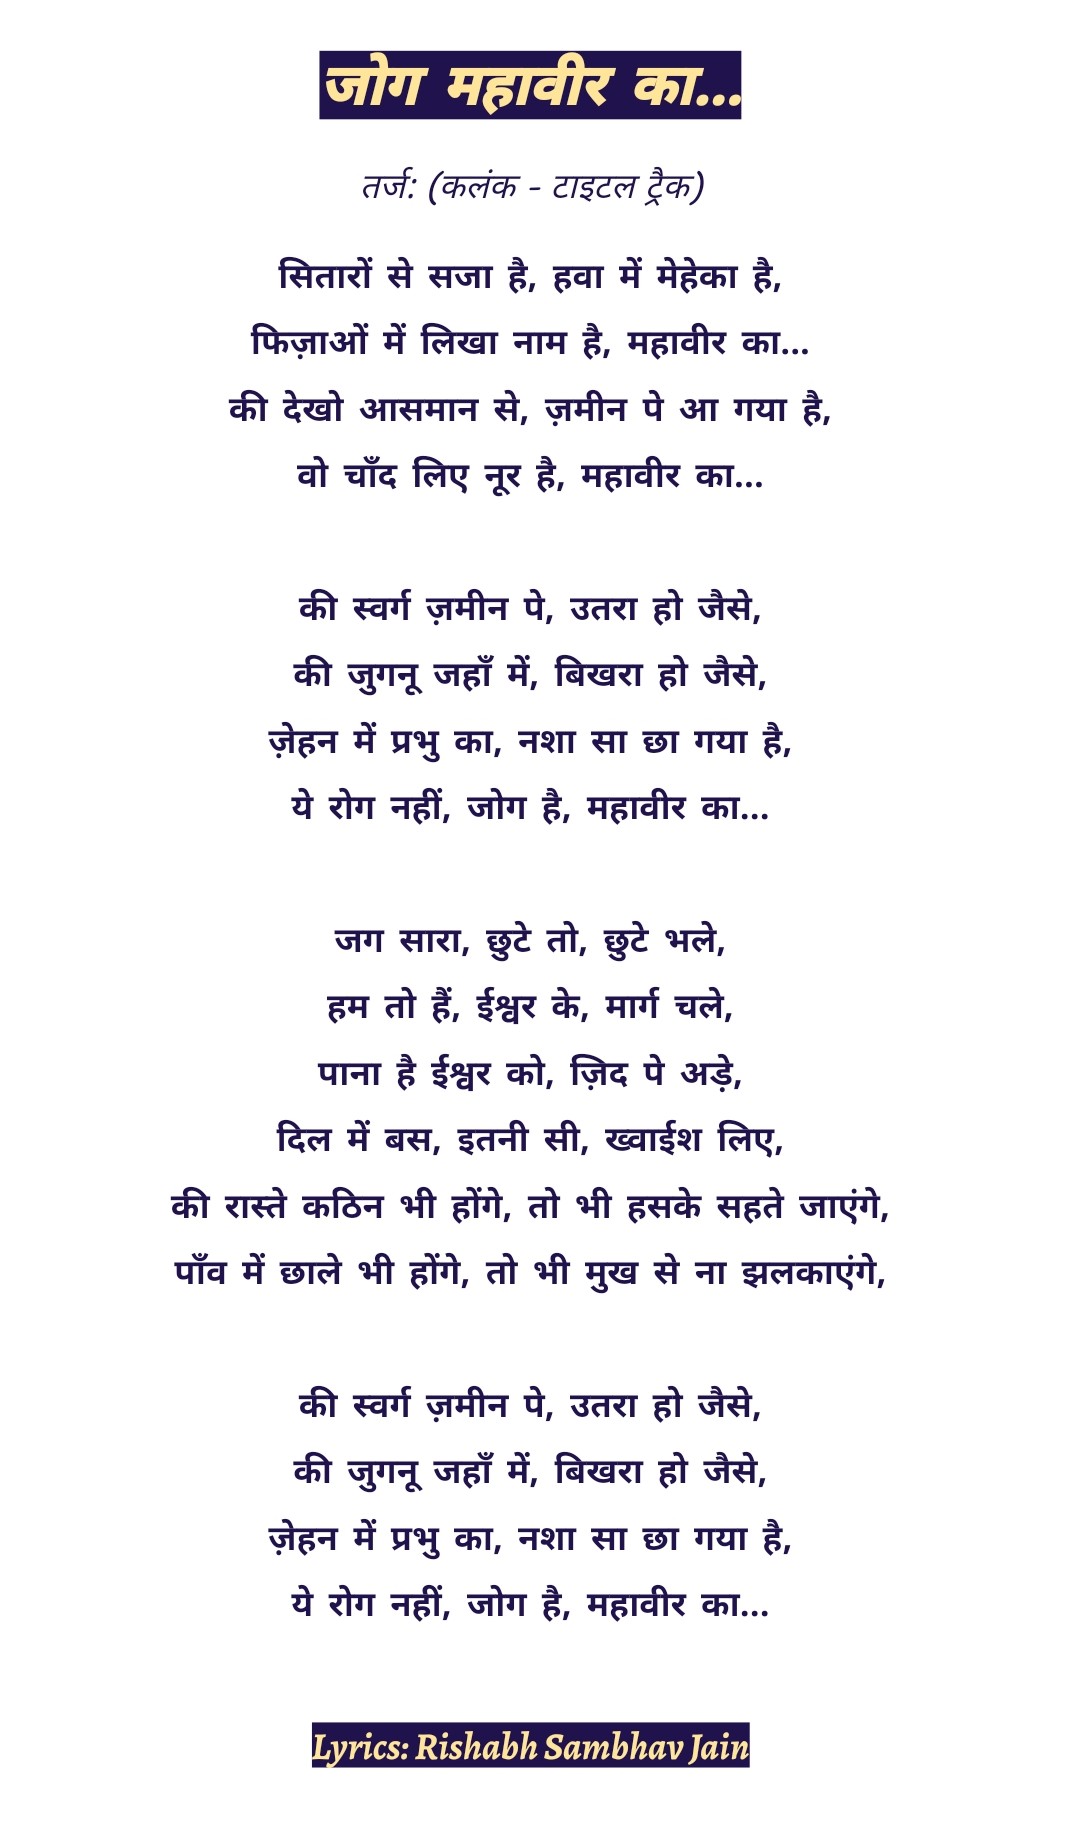 जोग महावीर का...
तर्ज: (कलंक - टाइटल ट्रैक)
सितारों से सजा है, हवा में मेहेका है,
फिज़ाओं में लिखा नाम है, महावीर का...
की देखो आसमान से, ज़मीन पे आ गया है,
वो चाँद लिए नूर है, महावीर का...
की स्वर्ग ज़मीन पे, उतरा हो जैसे,
की जुगनू जहाँ में, बिखरा हो जैसे,
ज़ेहन में प्रभु का, नशा सा छा गया है,
ये रोग नहीं, जोग है, महावीर का...
जग सारा, छुटे तो, छुटे भले,
हम तो हैं, ईश्वर के, मार्ग चले,
पाना है ईश्वर को, ज़िद पे अड़े,
दिल में बस, इतनी सी, ख्वाईश लिए,
की रास्ते कठिन भी होंगे, तो भी हसके सहते जाएंगे,
पाँव में छाले भी होंगे, तो भी मुख से ना झलकाएंगे,
की स्वर्ग ज़मीन पे, उतरा हो जैसे,
की जुगनू जहाँ में, बिखरा हो जैसे,
ज़ेहन में प्रभु का, नशा सा छा गया है,
ये रोग नहीं, जोग है, महावीर का...
Lyrics: Rishabh Sambhav Jain